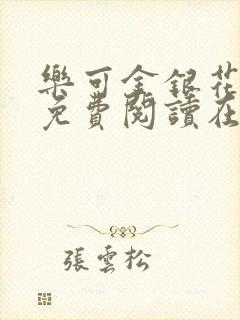 樂可金銀花
免費閱讀在
張雲松